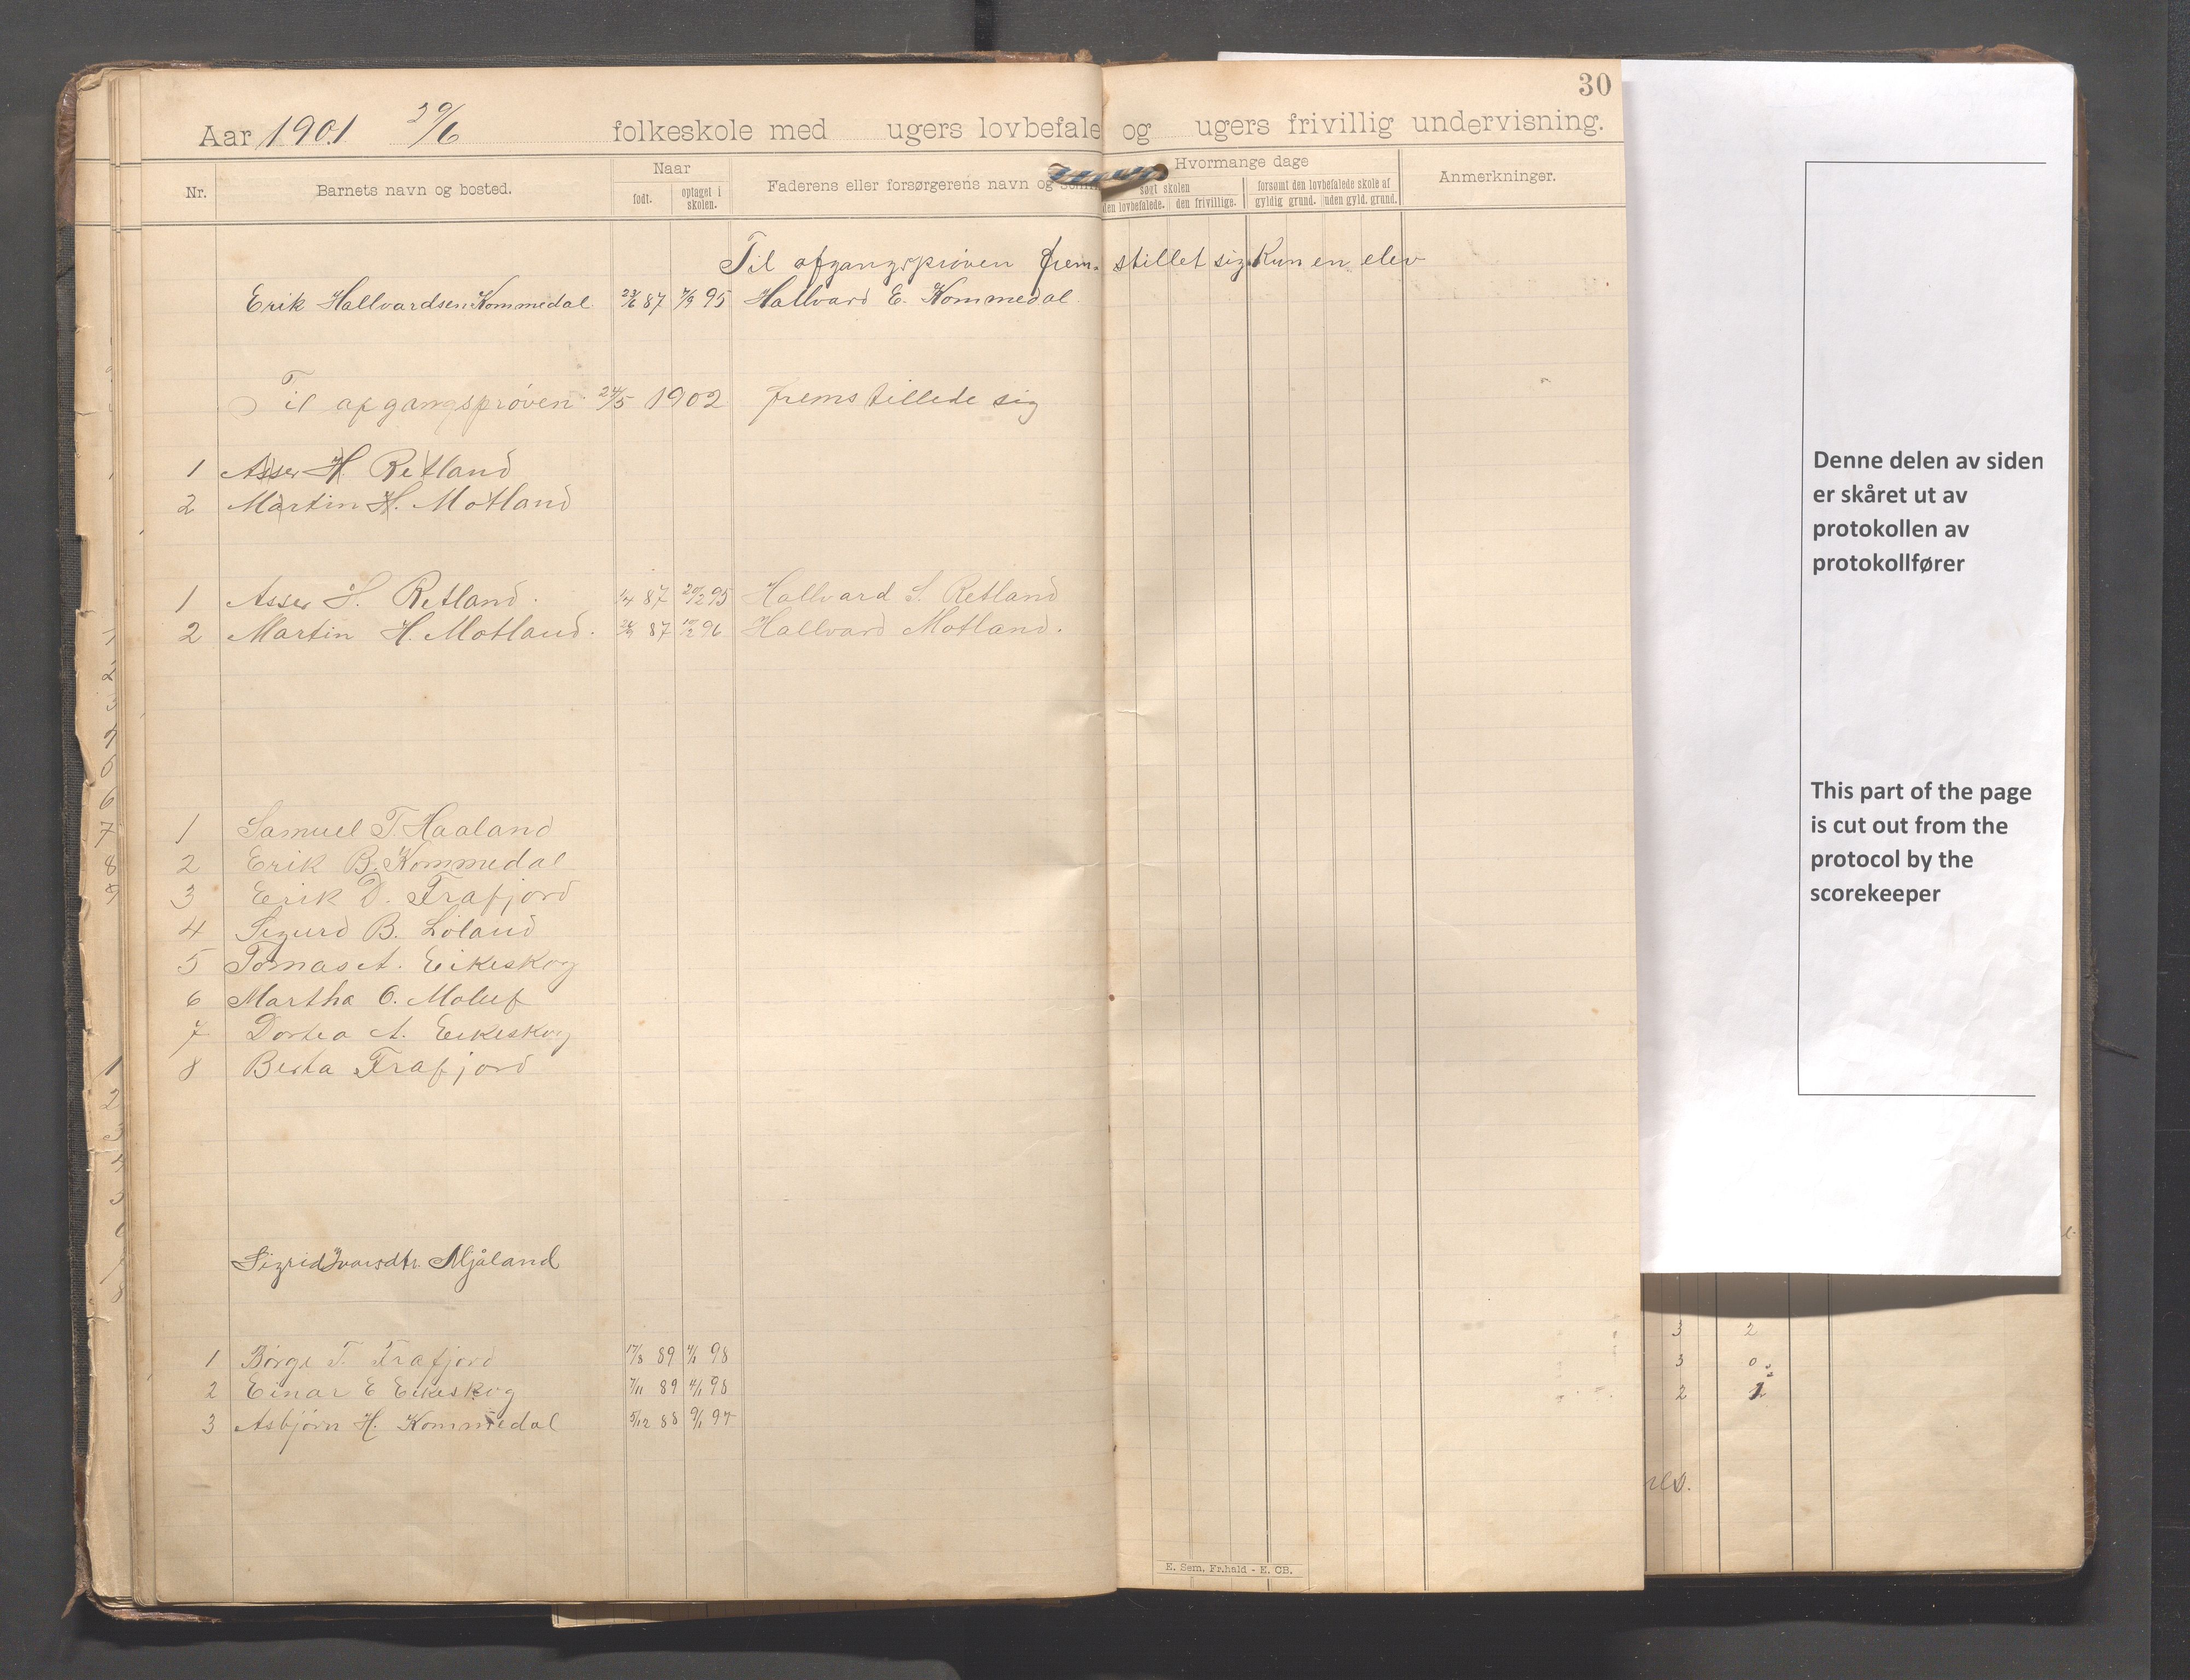 30
Aar 1901 29/6 folkeskole med ugers lovbefale og ugers frivillig undervisning.
Nr. Barnets navn og bosted. Naar født. optaget i skolen. Faderens eller forsørgerens navn og Hvormange dage søgt skolen den lovbefalede. den frivillige. forsømt den lovbefalede skole af gyldig grund. uden gyld. grund. Anmerkninger.
Til afgangsprøven frem- stillet sig Kun en elev
Erik Hallvardsen Kommedal 87 7/9 95 Hallvard E. Kommedal
Til afgangsprøven 24/5 1902 fremstillede sig
1 Asser H. Retland
2 Martin H. Motland
1 Asser H. Retland. 1/4 87 20/2 95 Hallvard S. Retland
2 Martin H. Motland. 87 96 Hallvard Motland.
1 Samuel T. Haaland
2 Erik B. Kommedal
3 Erik D. Frafjord
4 Sigurd B. Løland
5 Tomas A. Eikeskog
6 Martha O. Maluf
7 Dortea A. Eikeskog
8 Berta Frafjord
Sigrid Ivarsdtr. Mjåland
1 Børge T. Frafjord 17/8 89 4/1 98
2 Einar E Eikeskog 7/11 89 4/1 98
3 Asbjørn H. Kommedal 5/12 88 9/1 97
E. Sem, Fr.hald - E. CB.
Denne delen av siden
er skåret ut av
protokollen av
protokollfører
This part of the page
is cut out from the
protocol by the
scorekeeper
3 2
3 0
2 1